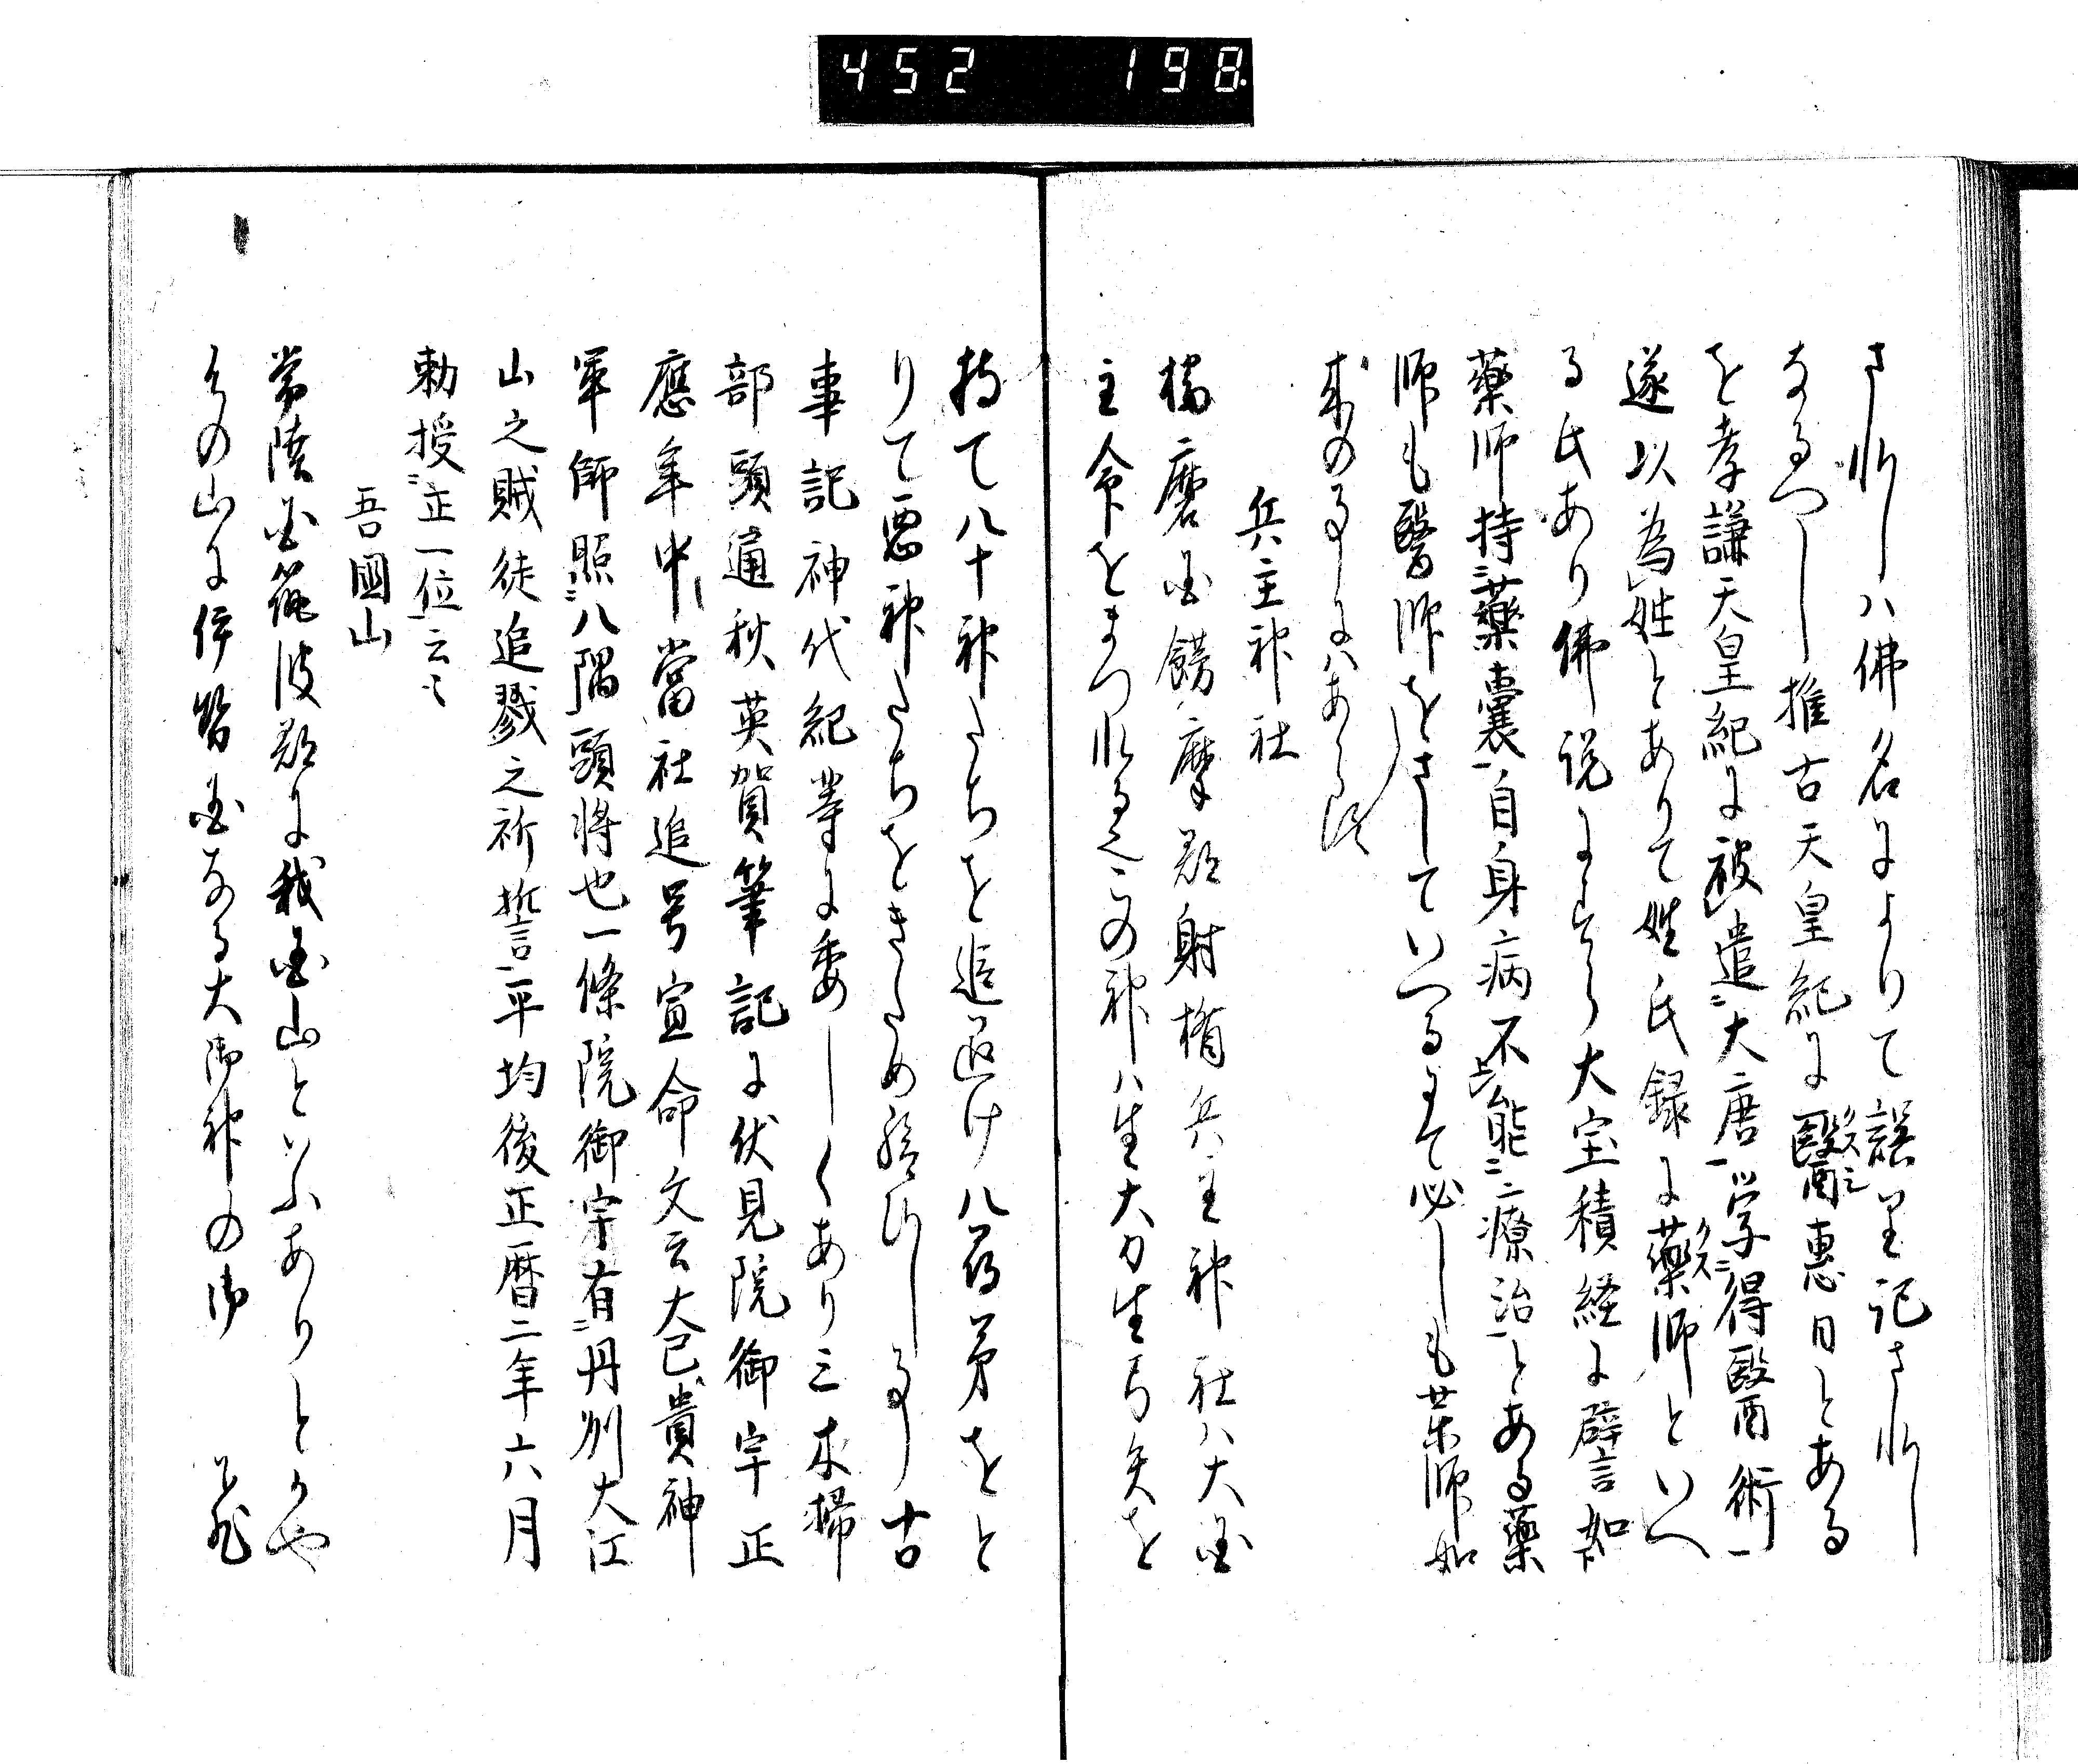 452 198
されしハ佛名によりて誤里記されし
なるへし推古天皇紀に醫惠日とある
を孝謙天皇紀に被遣大唐学得醫術
遂以為姓とありて姓氏録に藥師といへ
る氏あり佛説によ大宝積経に譬如
藥師持藥囊自身病不能療治とある藥
師も醫師をさしていへるにて必しも藥師如
来の事にハあらす
兵主神社
播磨国餝摩郡射楯兵主神社ハ大国
主命をまつれる也この神ハ生大刀生弓矢を
持て八十神たちを追退け八前弟をと
りて悪神たちをきため給ひし事古
事記神代紀等に委しくあり三木掃
部頭通秋英賀筆記に伏見院御宇正
應年中當社追号宣命文云大己貴神
軍師照八隅頭將也一條院御宇有丹州大江
山之賊徒追戮之祈誓平均後正暦二年六月
勅授正一位云々
吾國山
常陸国筑波郡に我国山といふありとかや
その山に伊勢国なる大御神の御